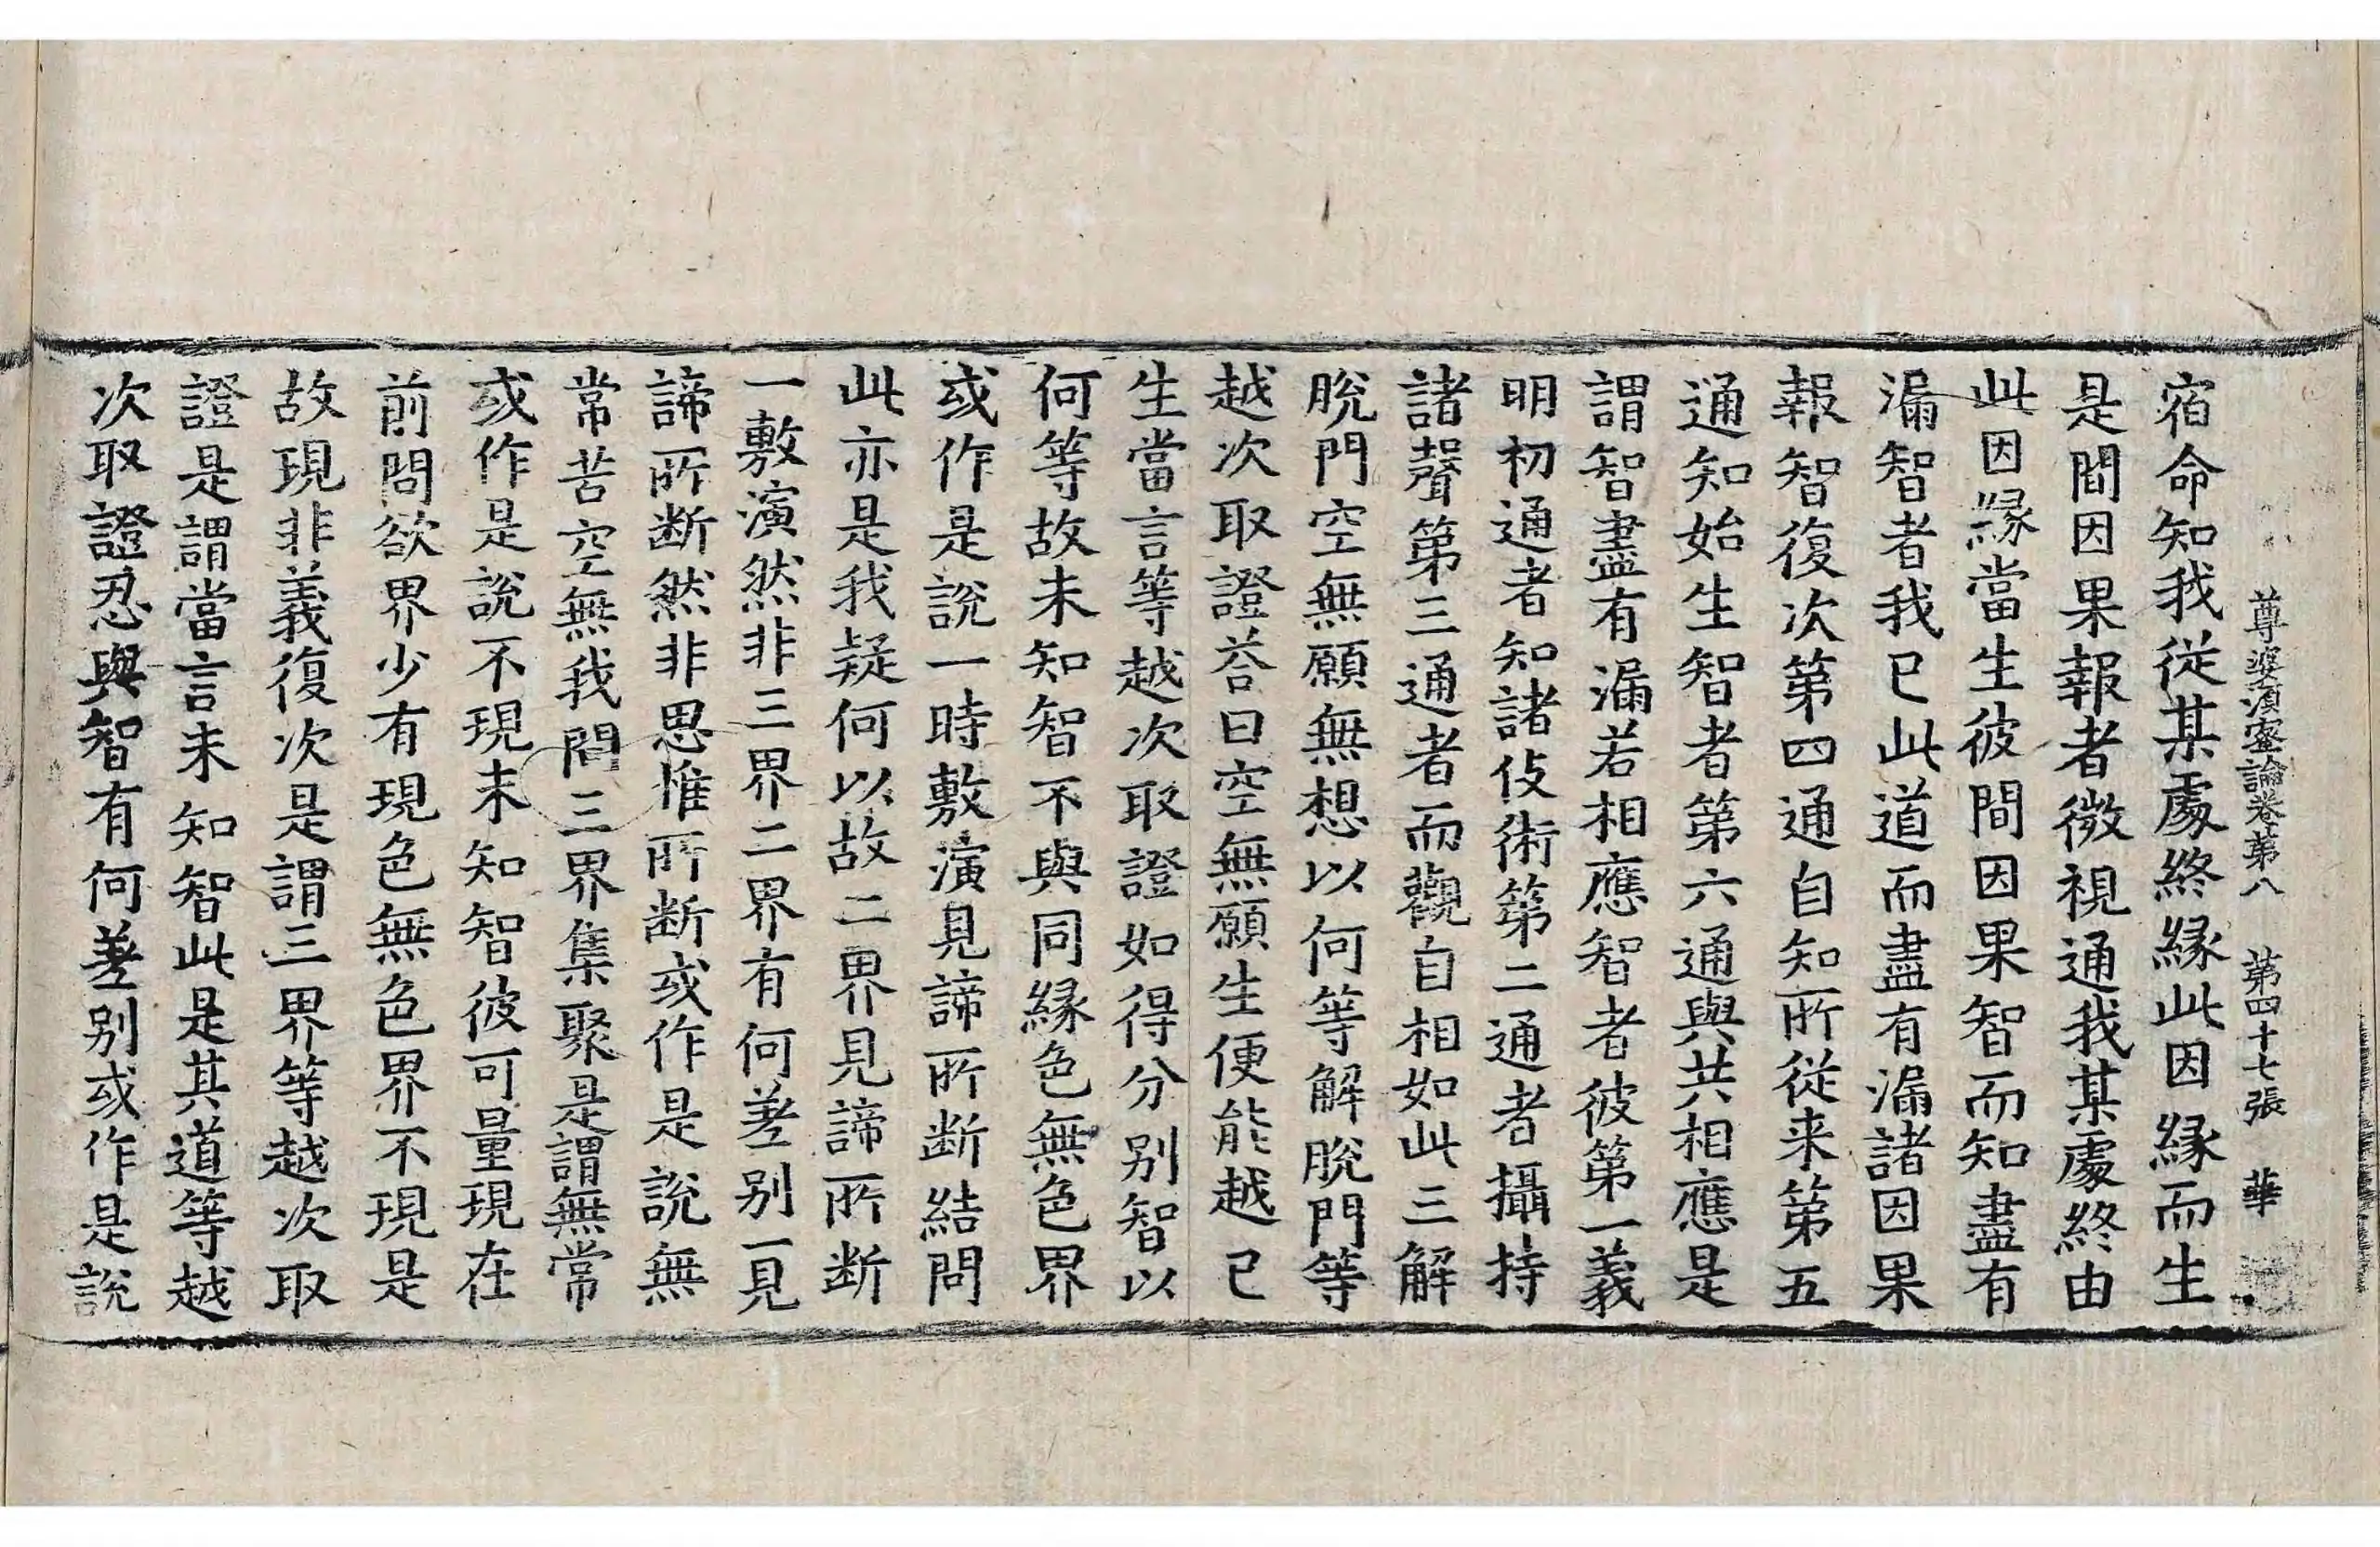 尊婆須蜜論卷第八　第四十七張　華
宿命知我從某處終緣此因緣而生
是間因果報者微視通我某處終由
此因緣當生彼間因果智而知盡有
漏智者我已此道而盡有漏諸因果
報智復次第四通自知所從来第五
通知始生智者第六通與共相應是
謂智盡有漏若相應智者彼第一義
明初通者知諸伎術第二通者攝持
諸聲第三通者而觀自相如此三解
脫門空無願無想以何等解脫門等
越次取證荅曰空無願生便能越已
生當言等越次取證如得分別智以
何等故未知智不與同緣色無色界
或作是說一時敷演見諦所断結問
此亦是我疑何以故二界見諦所断
一敷演然非三界二界有何差別一見
諦所断然非思惟所断或作是說無
常苦空無我問三界集聚是謂無常
或作是說不現未知智彼可量現在
前問欲界少有現色無色界不現是
故現非義復次是謂三界等越次取
證是謂當言未知智此是其道等越
次取證忍與智有何差別或作是說